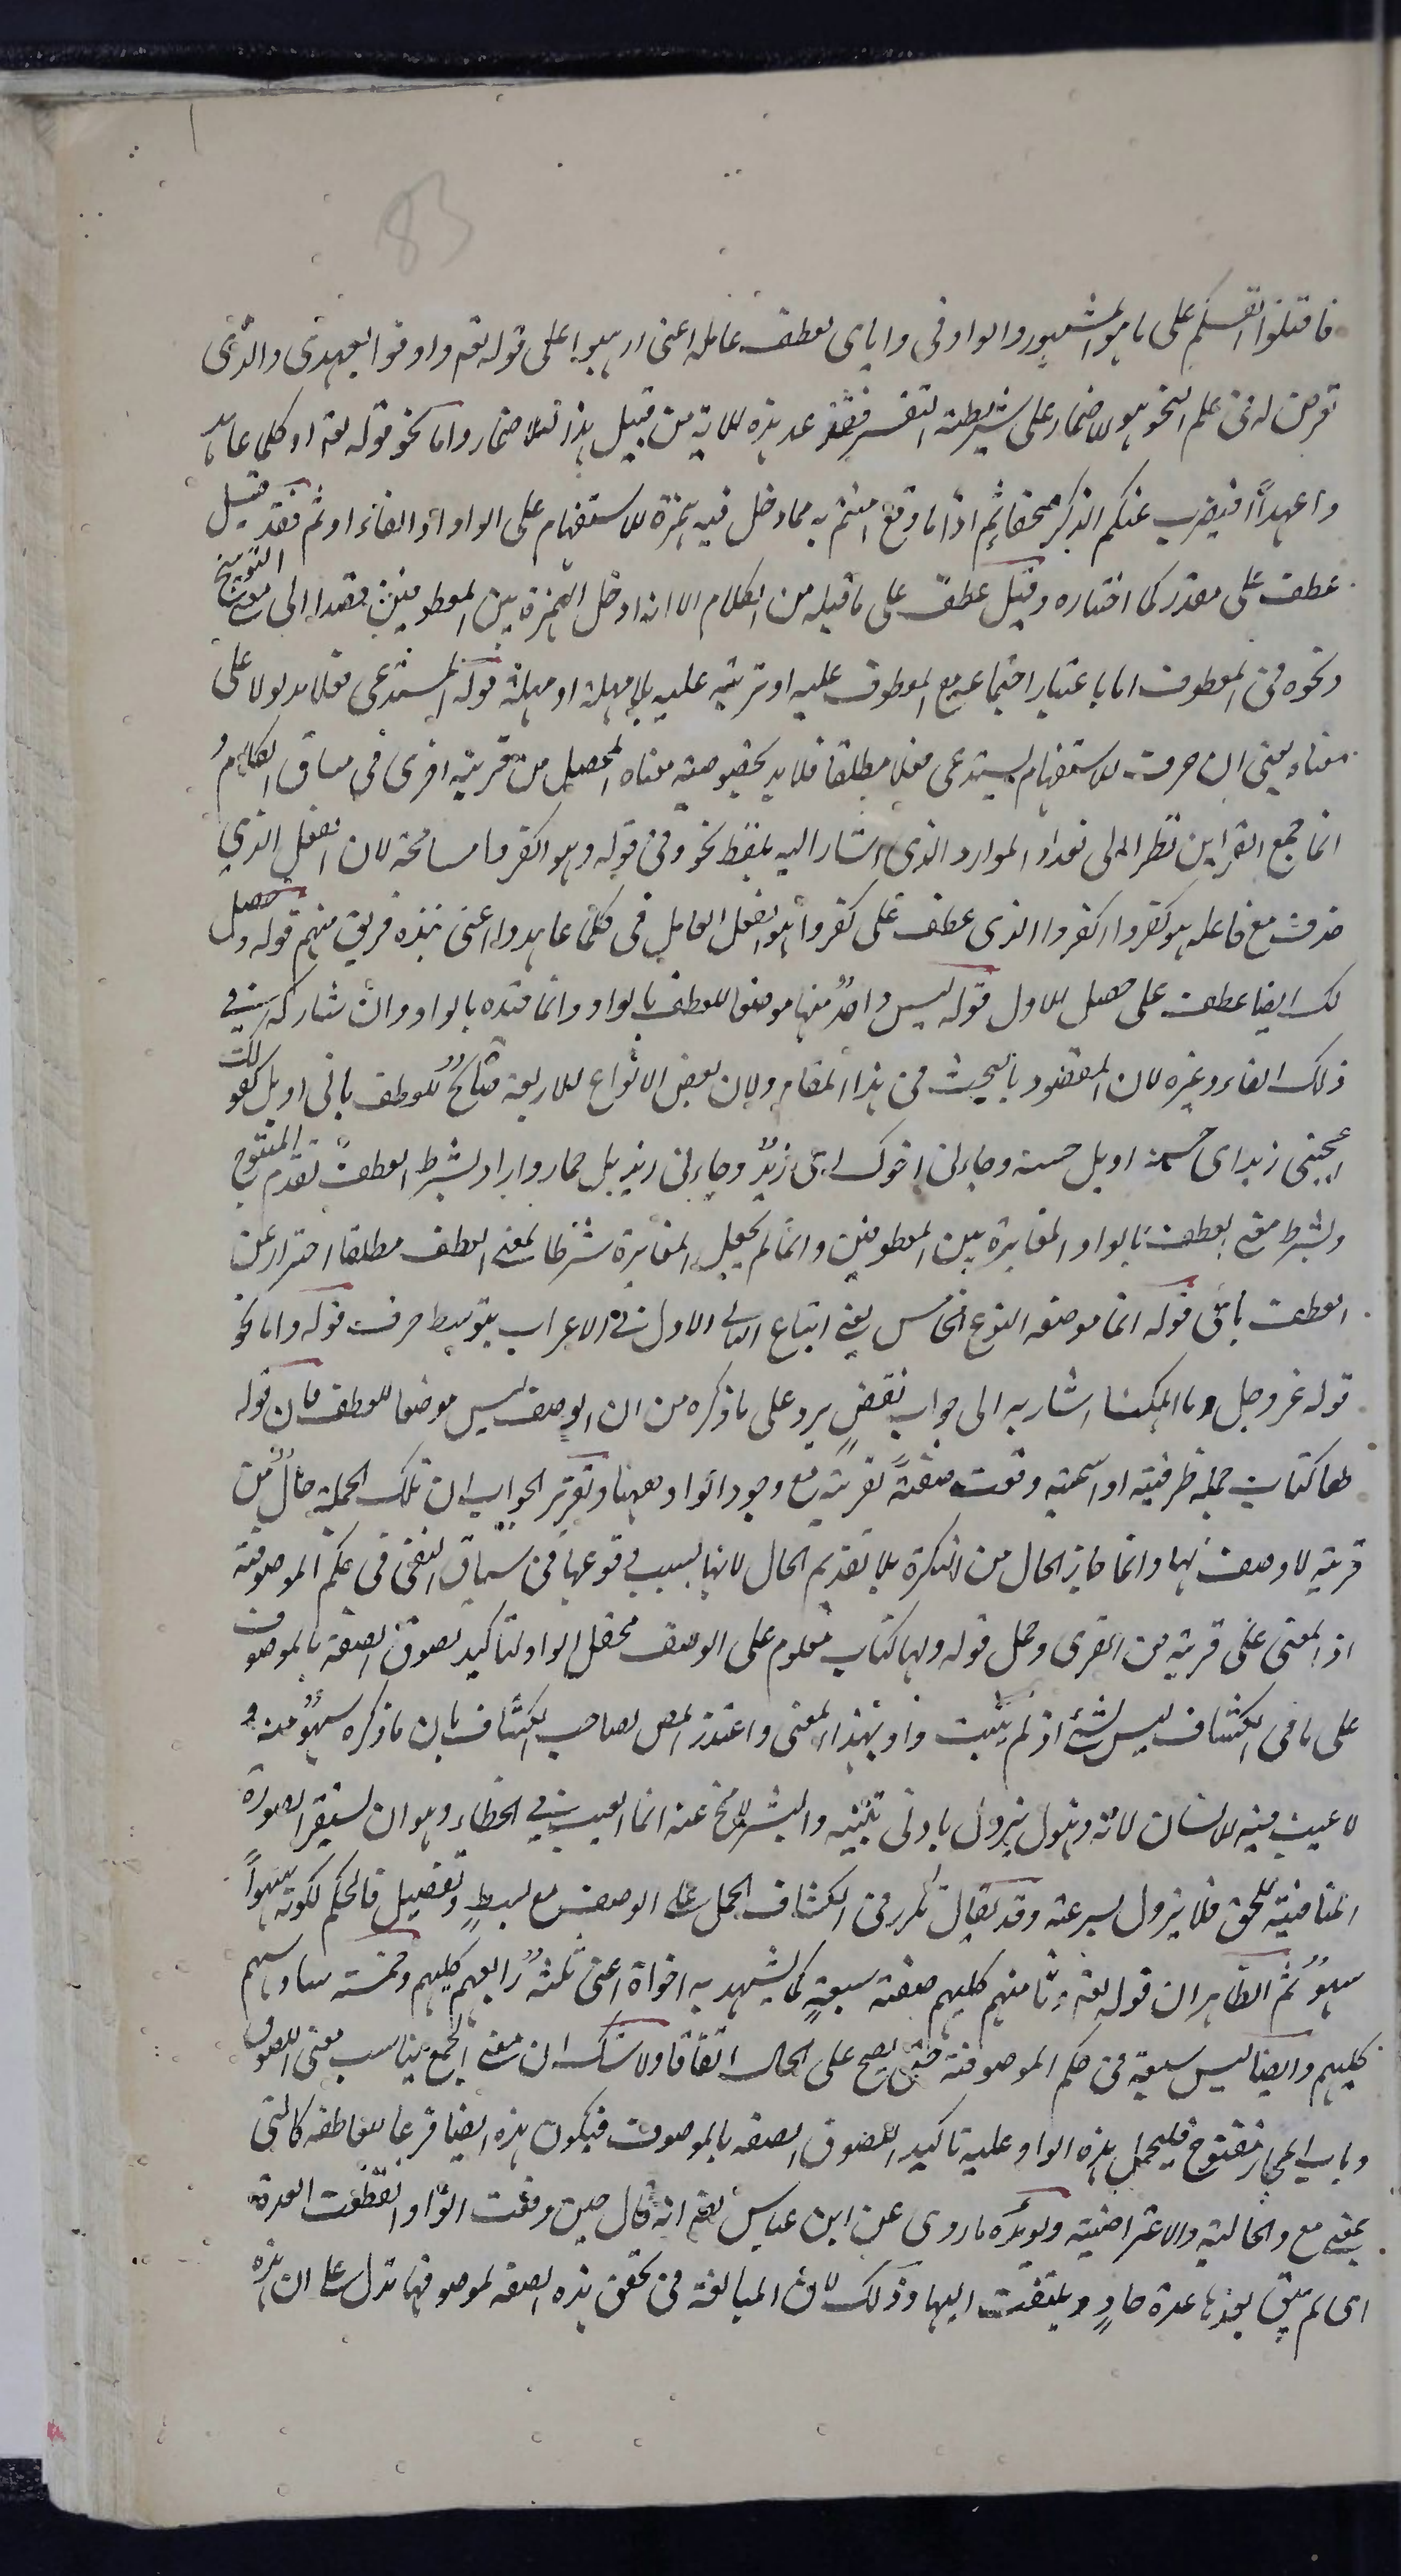 83
فاقتلوا انفسكم على ما هو المشهور والواو في واياي لعطف عامله اعني ارهبوا على قوله تعه واوفوا بعهدي والذي
تعرض له في علم النحو هو الاضمار على شريطة التفسير فقد عد هذه الاية من قبيل هذا الاضمار واما نحو قوله تعه او كلما عاهد
وا عهداً افنضرب عنكم الذكر صفحا اثم اذا ما وقع امنتم به مما دخل فيه همزة الاستفهام على الواو او الفاء او ثم فقد قيل
عطف على مقدر كما اختاره وقيل عطف على ما قبله من الكلام الا انه ادخل الهمزة بين المعطوفين قصدا الى التوبيخ
ونحوه في المعطوف اما باعتبار اجتماعه مع المعطوف عليه او ترتبه عليه بلا مهلة او مهلة قوله المستدعي فعلا مدلولا على
معناه يعني ان حرف الاستفهام يستدعي فعلا مطلقا فلا بد لخصوصية معناه المحصل من قرينة اخرى في مساق الكلام و
انما جمع القراين نظرا الى تعداد الموارد الذي اشار اليه بلفظ نحو وفي قوله وهو اكفروا مسامحة لان الفعل الذي
حذف مع فاعله هو كفروا اكفروا الذي عطف على كفروا هو الفعل العامل في كلما عاهدوا اعني نبذه فريق منهم قوله وحصل
لك ايضا عطف على حصل الاول قوله ليس واحد منها موضعا للعطف بالواو وانما قيده بالواو وان شاركه في
ذلك الفاء وغيره لان المقصود بالبحث في هذا المقام ولان بعض الانواع الاربعة صالح للعطف باي او بل كقولك
اعجبني زيد اي حسنه او بل حسنه وجاءني اخوك اي زيد وجاءني زيد بل حمار واراد بشرط العطف تقدم المتبوع
وبشرط معنى العطف بالواو المغايرة بين المعطوفين وانما لم يجعل المغايرة شرطا لمعنى العطف مطلقا احترازا عن
العطف باي قوله انما موضعه النوع الخامس يعني اتباع الثاني الاول في الاعراب بتوسط حرف قوله واما نحو
قوله عز وجل وما اهلكنا اشار به الى جواب نقض يرد على ما ذكره من ان الوصف ليس موضعا للعطف فان قوله
لها كتاب جملة ظرفية او اسمية وقعت صفة لقرية مع وجود الواو ههنا وتقرير الجواب ان تلك الجملة حال من
قرية لا وصف لها وانما جاز الحال من النكرة بلا تقديم الحال لانها بسبب وقوعها في سياق النفي في حكم الموصوفة
اذ المعنى على قرية من القرى وحمل قوله ولها كتاب معلوم على الوصف بجعل الواو لتاكيد لصوق الصفة بالموصوف
على ما في الكشاف ليس بشئ اذ لم يثبت واو بهذا المعنى واعتذر المص لصاحب الكشاف بان ما ذكره سهو منه و
لا عيب فيه للانسان لانه ذهول يزول بادنى تنبيه والبشر لا يخ عنه انما العيب في الخطاء وهو ان يستقر الصورة
المنافية للحق فلا يزول بسرعة وقد يقال تكرر في الكشاف الحمل على الوصف مع بسط وتفصيل فالحكم لكونه سهوا
سهو ثم الظاهر ان قوله تعه وثامنهم كلبهم صفة سبعة كما يشهد به اخواه اعني ثلثة رابعهم كلبهم وخمسة سادسهم
كلبهم وايضا ليس سبعة في حكم الموصوفة حتى يصح على الحال اتفاقا ولا شك ان معنى الجمع يناسب معنى اللصوق
وباب المجاز مفتوح فليحمل هذه الواو عليه تاكيد اللصوق الصفة بالموصوف فيكون هذه ايضا فرعا للعاطفة كالتي
بمعنى مع والحالية والاعتراضية ويويده ما روي عن ابن عباس انه قال حين وقعت الواو انقطعت العدة
اي لم يبق بعدها عدة عاد يلتفت اليها وذلك لان المبالغة في تحقق هذه الصفة لموصوفها تدل على ان هذه